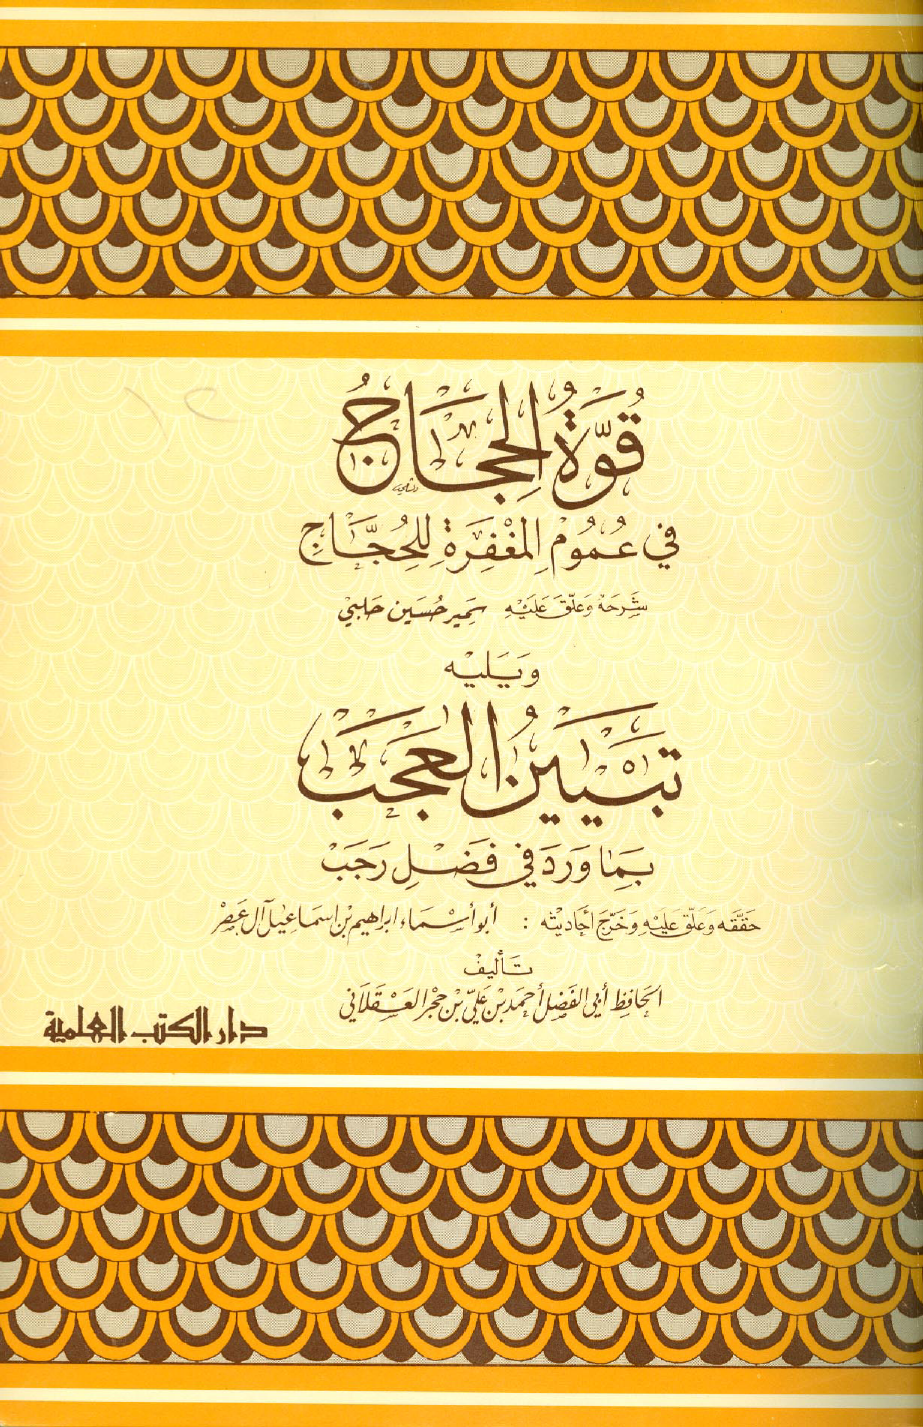 قُوَّةُ الحِجَاجُ
في عُمُومِ المَغْفِرَةِ لِلحُجَّاجِ
شَرحَهُ وَعَلّقَ عَلَيْهِ سَمير حُسَين حَلَبي
وَيَليْه
تَبْيَينُ العَجَبْ
بِمَا وَرَدَ في فَضْلِ رَجَبْ
حَقّقَه وَعَلّق عَليْهِ وَخَرّج أحَاديثه : أبو أسْمَاء ابراهيم بن اسماعيل آل عَصْر
تَأليف
الحَافِظ أبي الفَضل أحمَد بن عَليّ بن حجَر العَسْقَلاني
دار الكتب العلمية